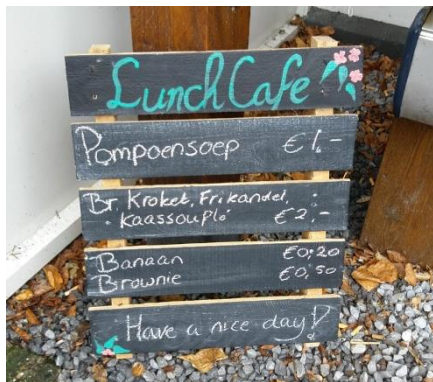 Lunch Cafe
Pompoensoep €1,-
Br. Kroket, Frikandel,
Kaassouplé €2,-
Banaan €0,20
Brownie €0,50
Have a nice day!